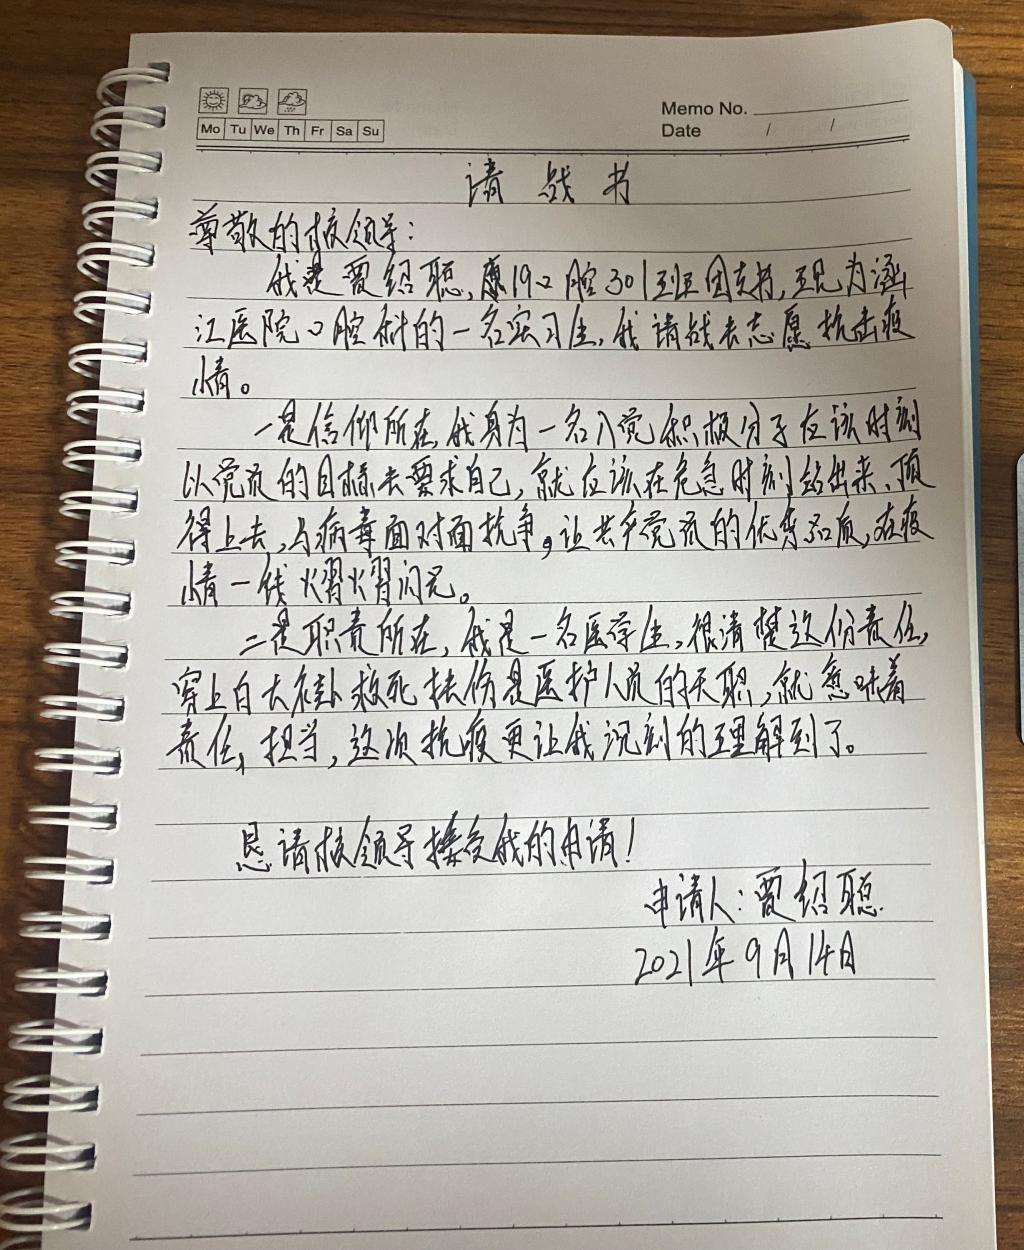 Memo No.
Mo Tu We Th Fr Sa Su
Date / /
请战书
尊敬的校领导:
我是贾绍聪,原19口腔301班团支书,现为涵
江医院口腔科的一名实习生,我请战去志愿抗击疫
情。
一是信仰所在,我身为一名入党积极分子在应该时刻
以党员的目标去要求自己,就应该在危急时刻站出来、顶
得上去,与病毒面对面抗争,让共产党员的优秀品质,在疫
情一线熠熠闪光。
二是职责所在,我是一名医学生,很清楚这份责任,
穿上白大褂救死扶伤是医护人员的天职,就意味着
责任,担当,这次抗疫更让我沉刻的理解到了。
恳请校领导接受我的申请!
申请人:贾绍聪
2021年9月14日